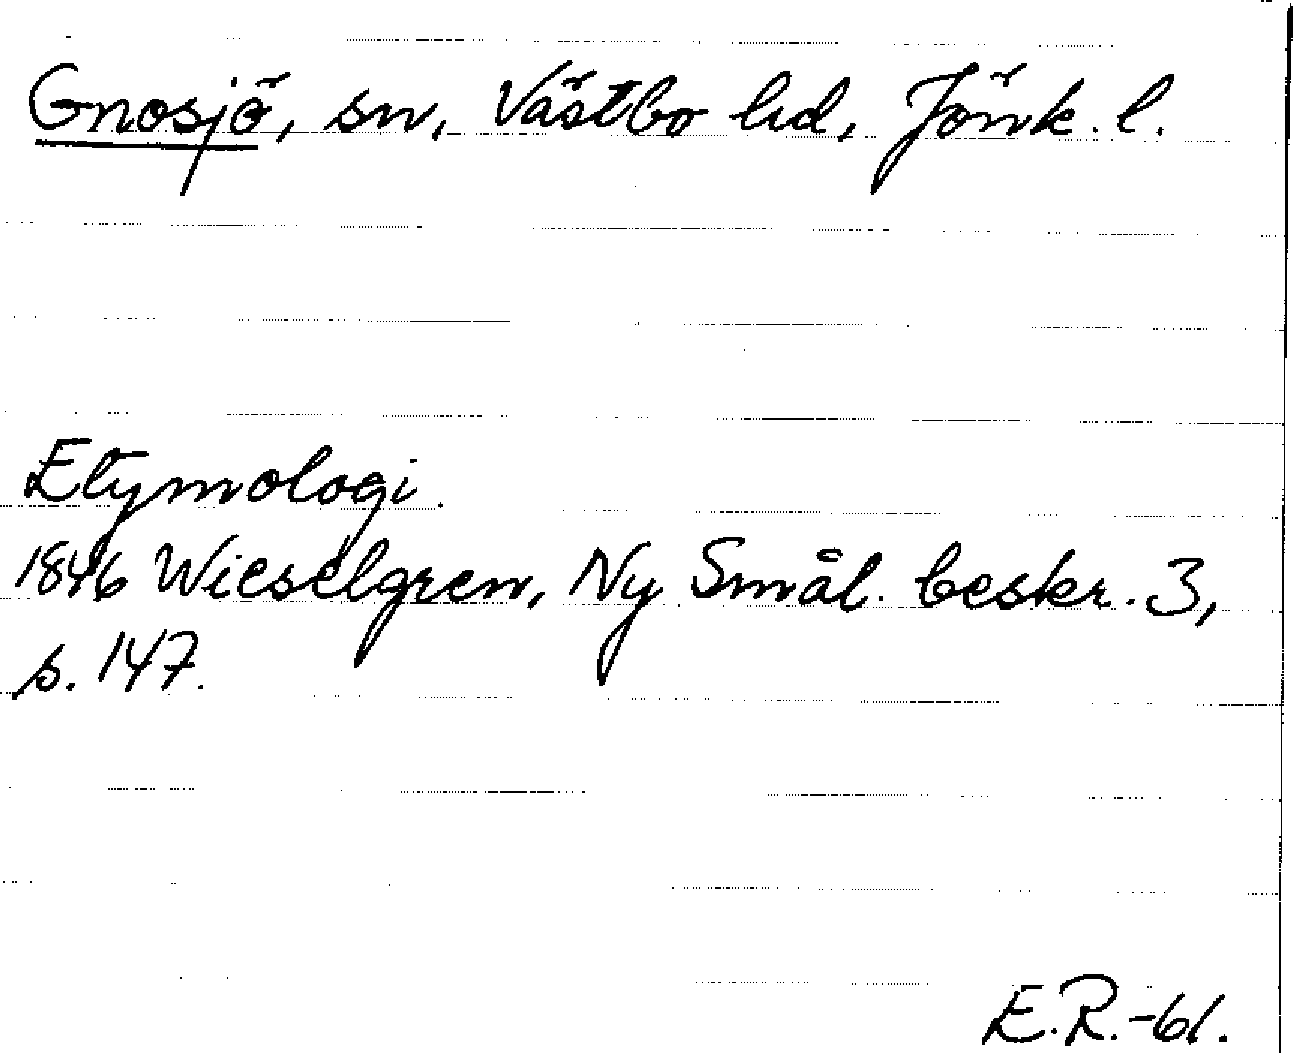 Gnosjö, sn, Västbo hd, Jönk. l.
Etymologi.
1846 Wieselgren, Ny Smål. beskr. 3,
s. 147.
E.R.-61.